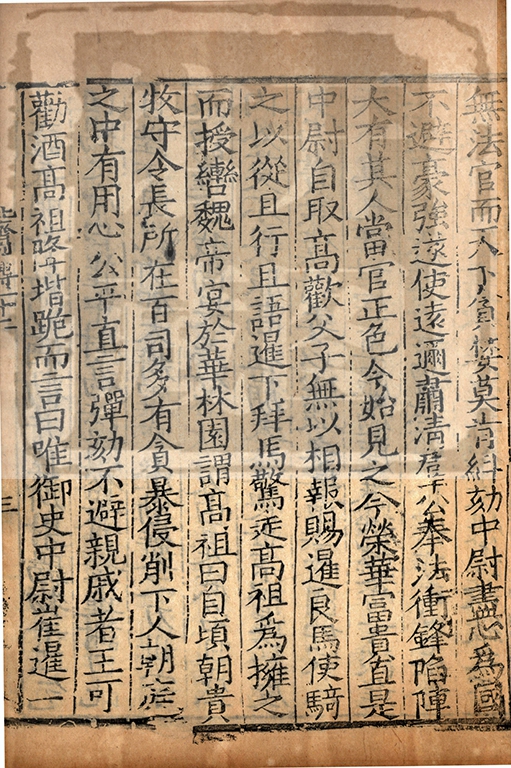 無法官而天下貪婪莫肯糾劾中尉盡心為國
不避豪強遂使遠邇肅清羣公奉法衝鋒陷陣
大有其人當官正色今始見之今榮華富貴直是
中尉自取高歡父子無以相報賜暹良馬使騎
之以從且行且語暹下拜馬驚走高祖為擁之
而授轡魏帝宴於華林園謂高祖曰自頃朝貴
牧守令長所在百司多有貪暴侵削下人朝廷
之中有用心公平直言彈劾不避親戚者王可
勸酒高祖降堦跪而言曰唯御史中尉崔暹一
北齊傳廿二
三